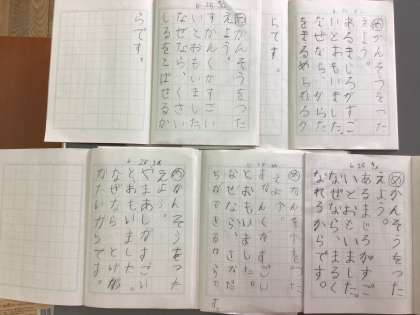 めかんそうをつた
えよう。
あるまじろがすご
いとおもいました。
なぜなら、からだ
をまるめられるか
らです。
めかんそうをつた
えよう。
すかんくがすごい
とおもいました。
なぜなら、くさい
しるをとばせるか
らです。
めかんそうをつた
えよう。
あるまじろがすご
いとおもいました。
なぜなら、まるく
なれるからです。
めかんそうをつた
えよう。
すかんくがすごい
とおもいました。
なぜなら、
めかんそうをつた
えよう。
やまあらしがすごい
とおもいました。
なぜなら、とげが
かたいからです。